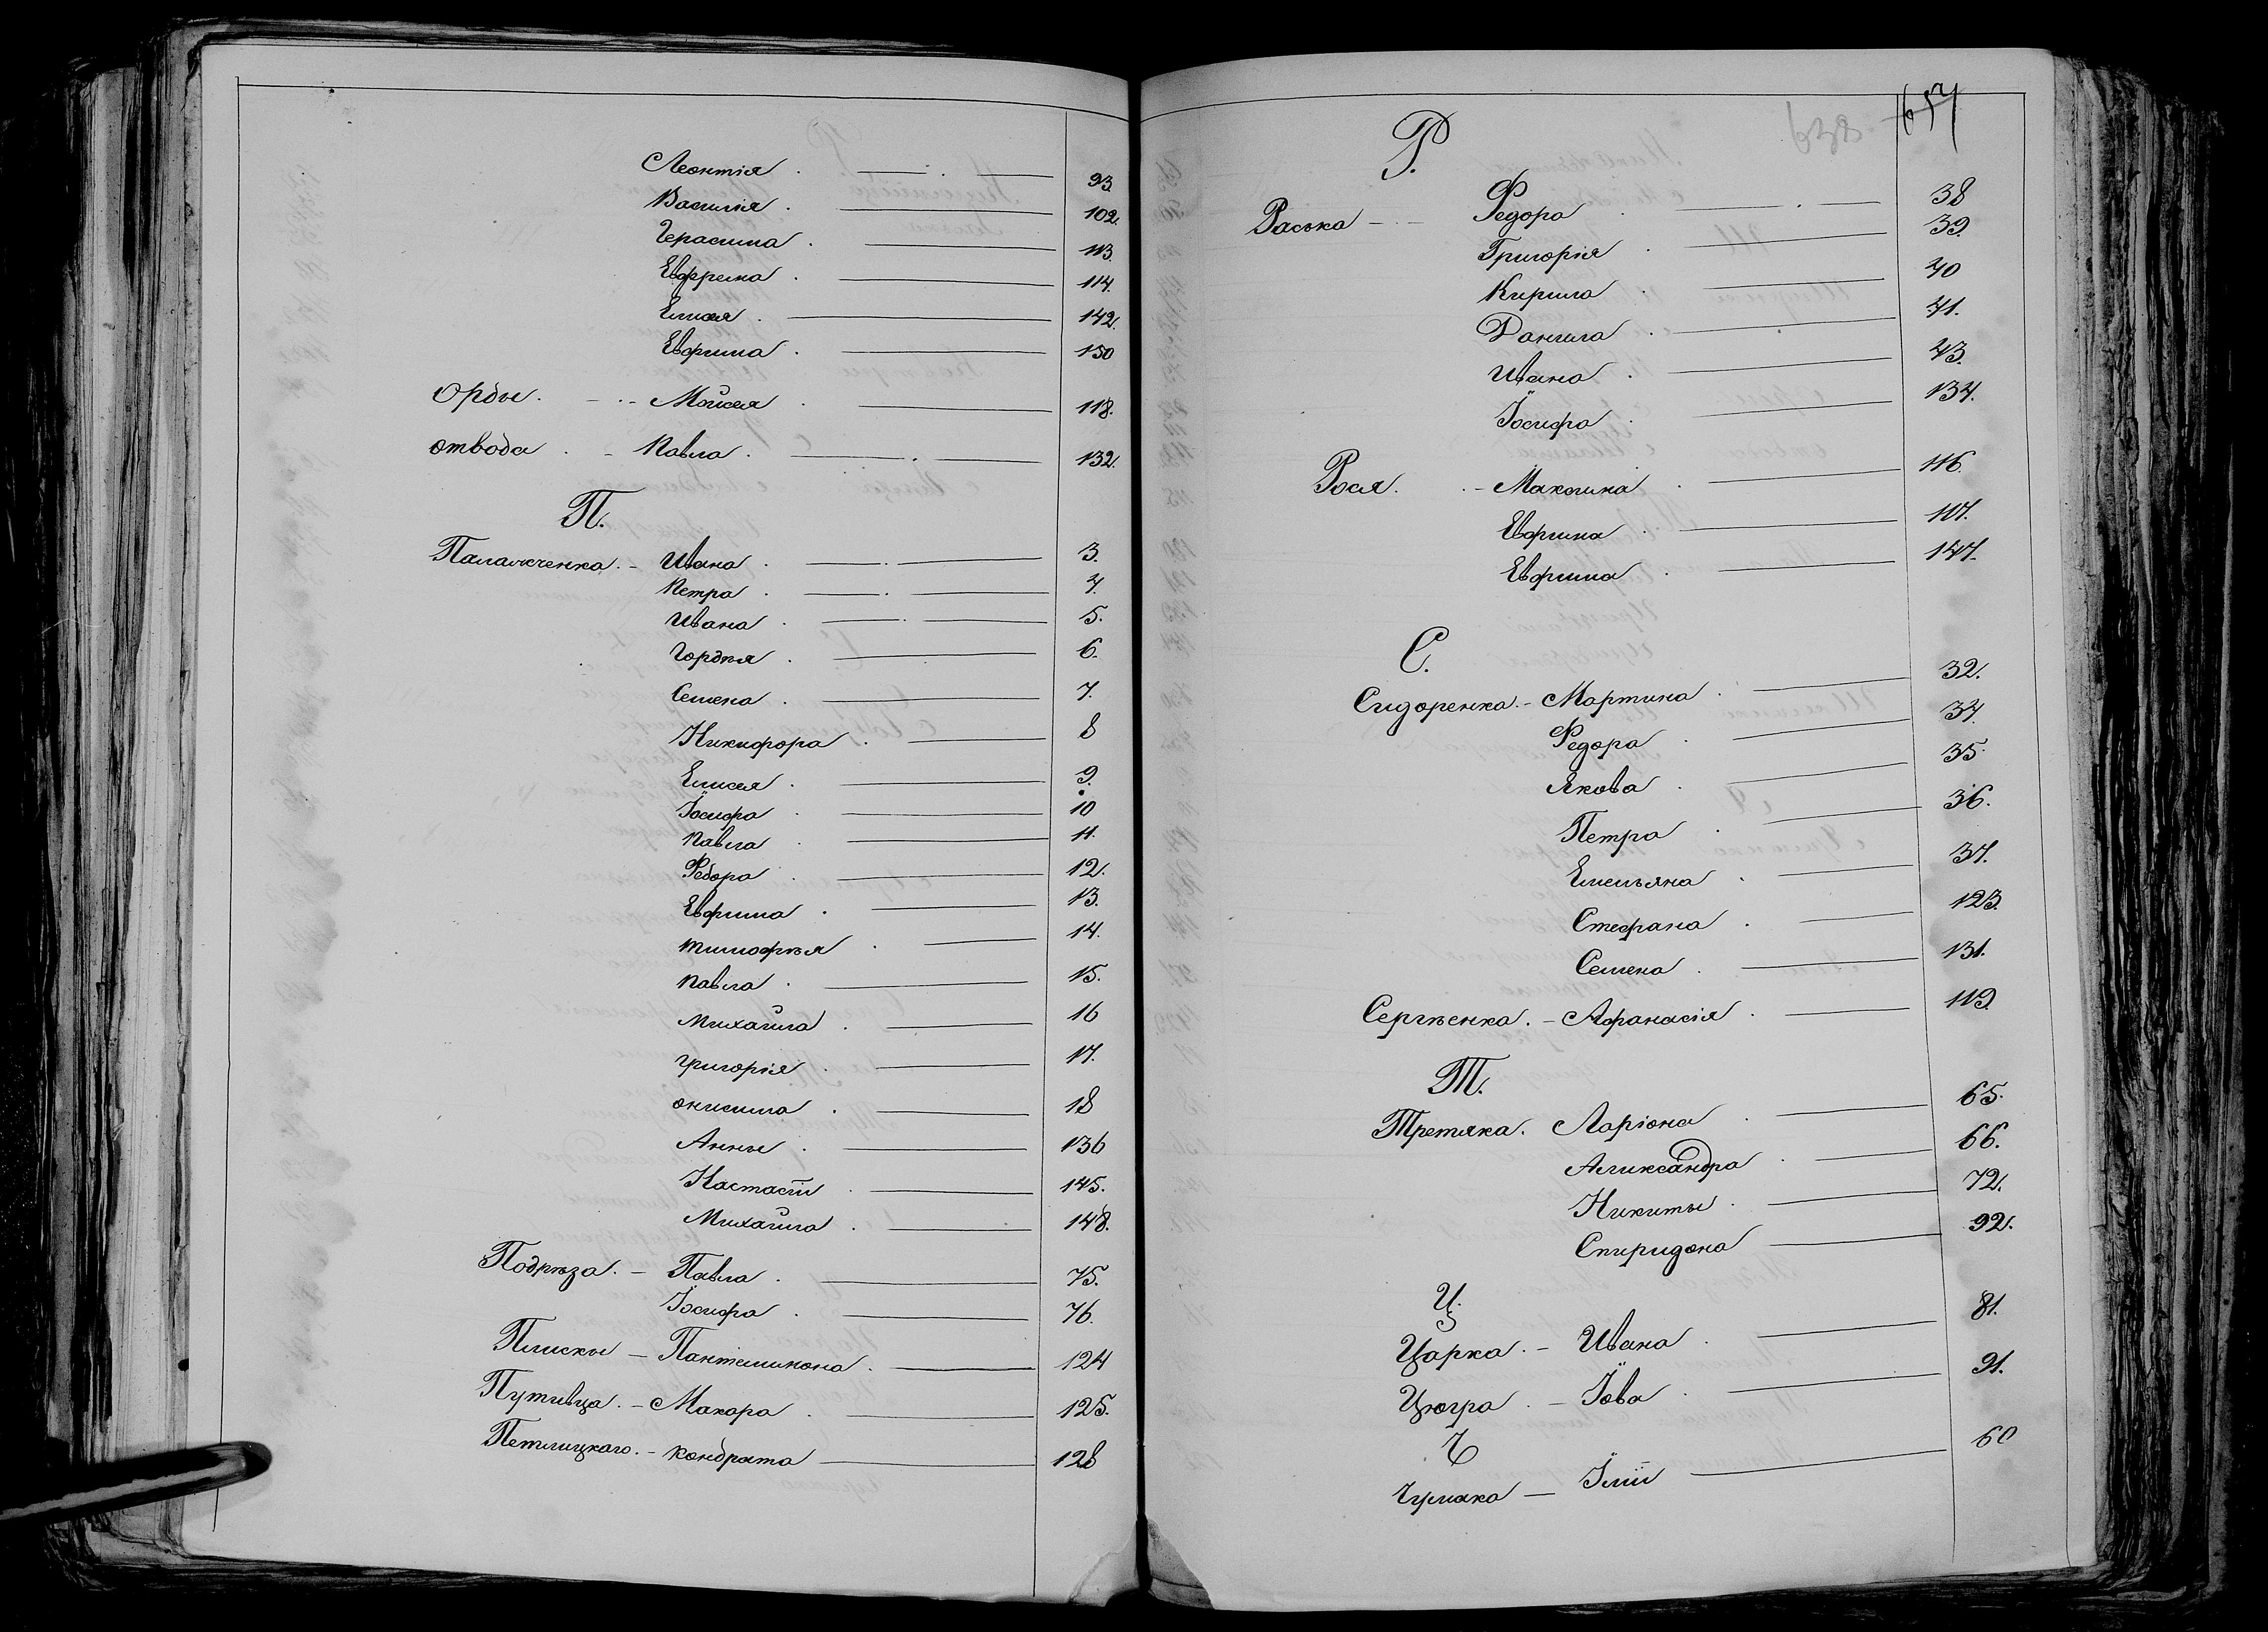 Леонтія . — . — 93.
Василія . — 102.
Герасима . — 113.
Евфрема . — 114.
Елисея . — 142.
Евфима . — 150
Орды . - .. Моисея . — 118.
Отвода . - Павла . — . — 132.
П.
Паламченка . - Ивана . — . — 3.
Петра . — . — 4.
Ивана . — . — 5.
Гордѣя . — 6.
Семена . — 7.
Никифора . — 8
Елисея . — 9.
Іосифа . — 10
Павла . — 11.
Федора . — 12.
Евфима . — 13.
Тимофѣя . — 14.
Павла . — 15.
Михаила . — 16
Григорія . — 17.
Онисима . — 18
Анны . — 136
Настасіи . — 145.
Михаила . — 148.
Подрѣза . - Павла . — 75.
Іосифа . — 76.
Плиски - Пантелимона . — 124
Путивца . - Макара . — 125.
Петлицкаго . - Кондрата — 128
638 654
Р.
Раська - - Федора . — . — 38
Григорія . — 39.
Кирила . — 40
Данила . — 41.
Ивана . — 43.
Іосифа . — 134.
Рося . . - Максима . — 116.
Евфима . — 117.
Евфима . — 147.
С.
Сидоренка . - Мартина . — 32.
Федора . — 34.
Якова . — 35.
Петра . — 36.
Емельяна . — 37.
Стефана . — 123.
Семена . — 131.
Сергѣенка . - Афанасія . — 119.
Т.
Третяка . Ларіона . — 65.
Александра . — 66.
Никиты . — 72.
Спиридона — 92.
Ц.
Царка . - Ивана . — 81.
Цюгра . - Іова . — 91.
Ч
Чумака — Іліи — 60